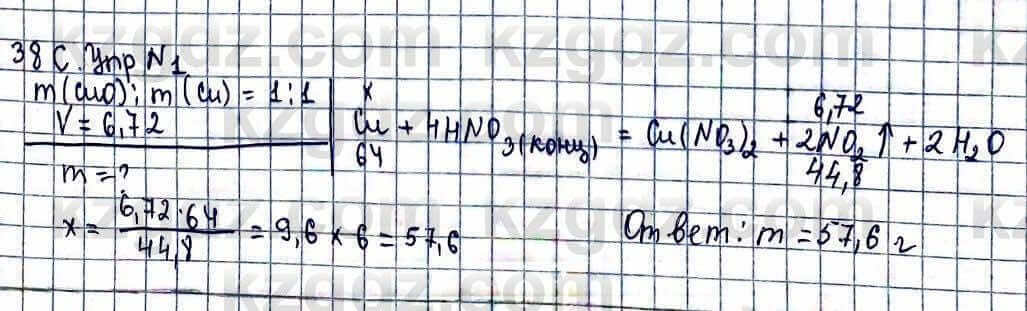 38 С. Упр N1
m(CuO): m(Cu) = 1:1
V = 6,72
m = ?
x 6,72
Cu + 4HNO3(конц) = Cu(NO3)2 + 2NO2↑ + 2H2O
64 44,8
x = 6,72·64 / 44,8 = 9,6 × 6 = 57,6
Ответ: m = 57,6 г
kzgdz.com